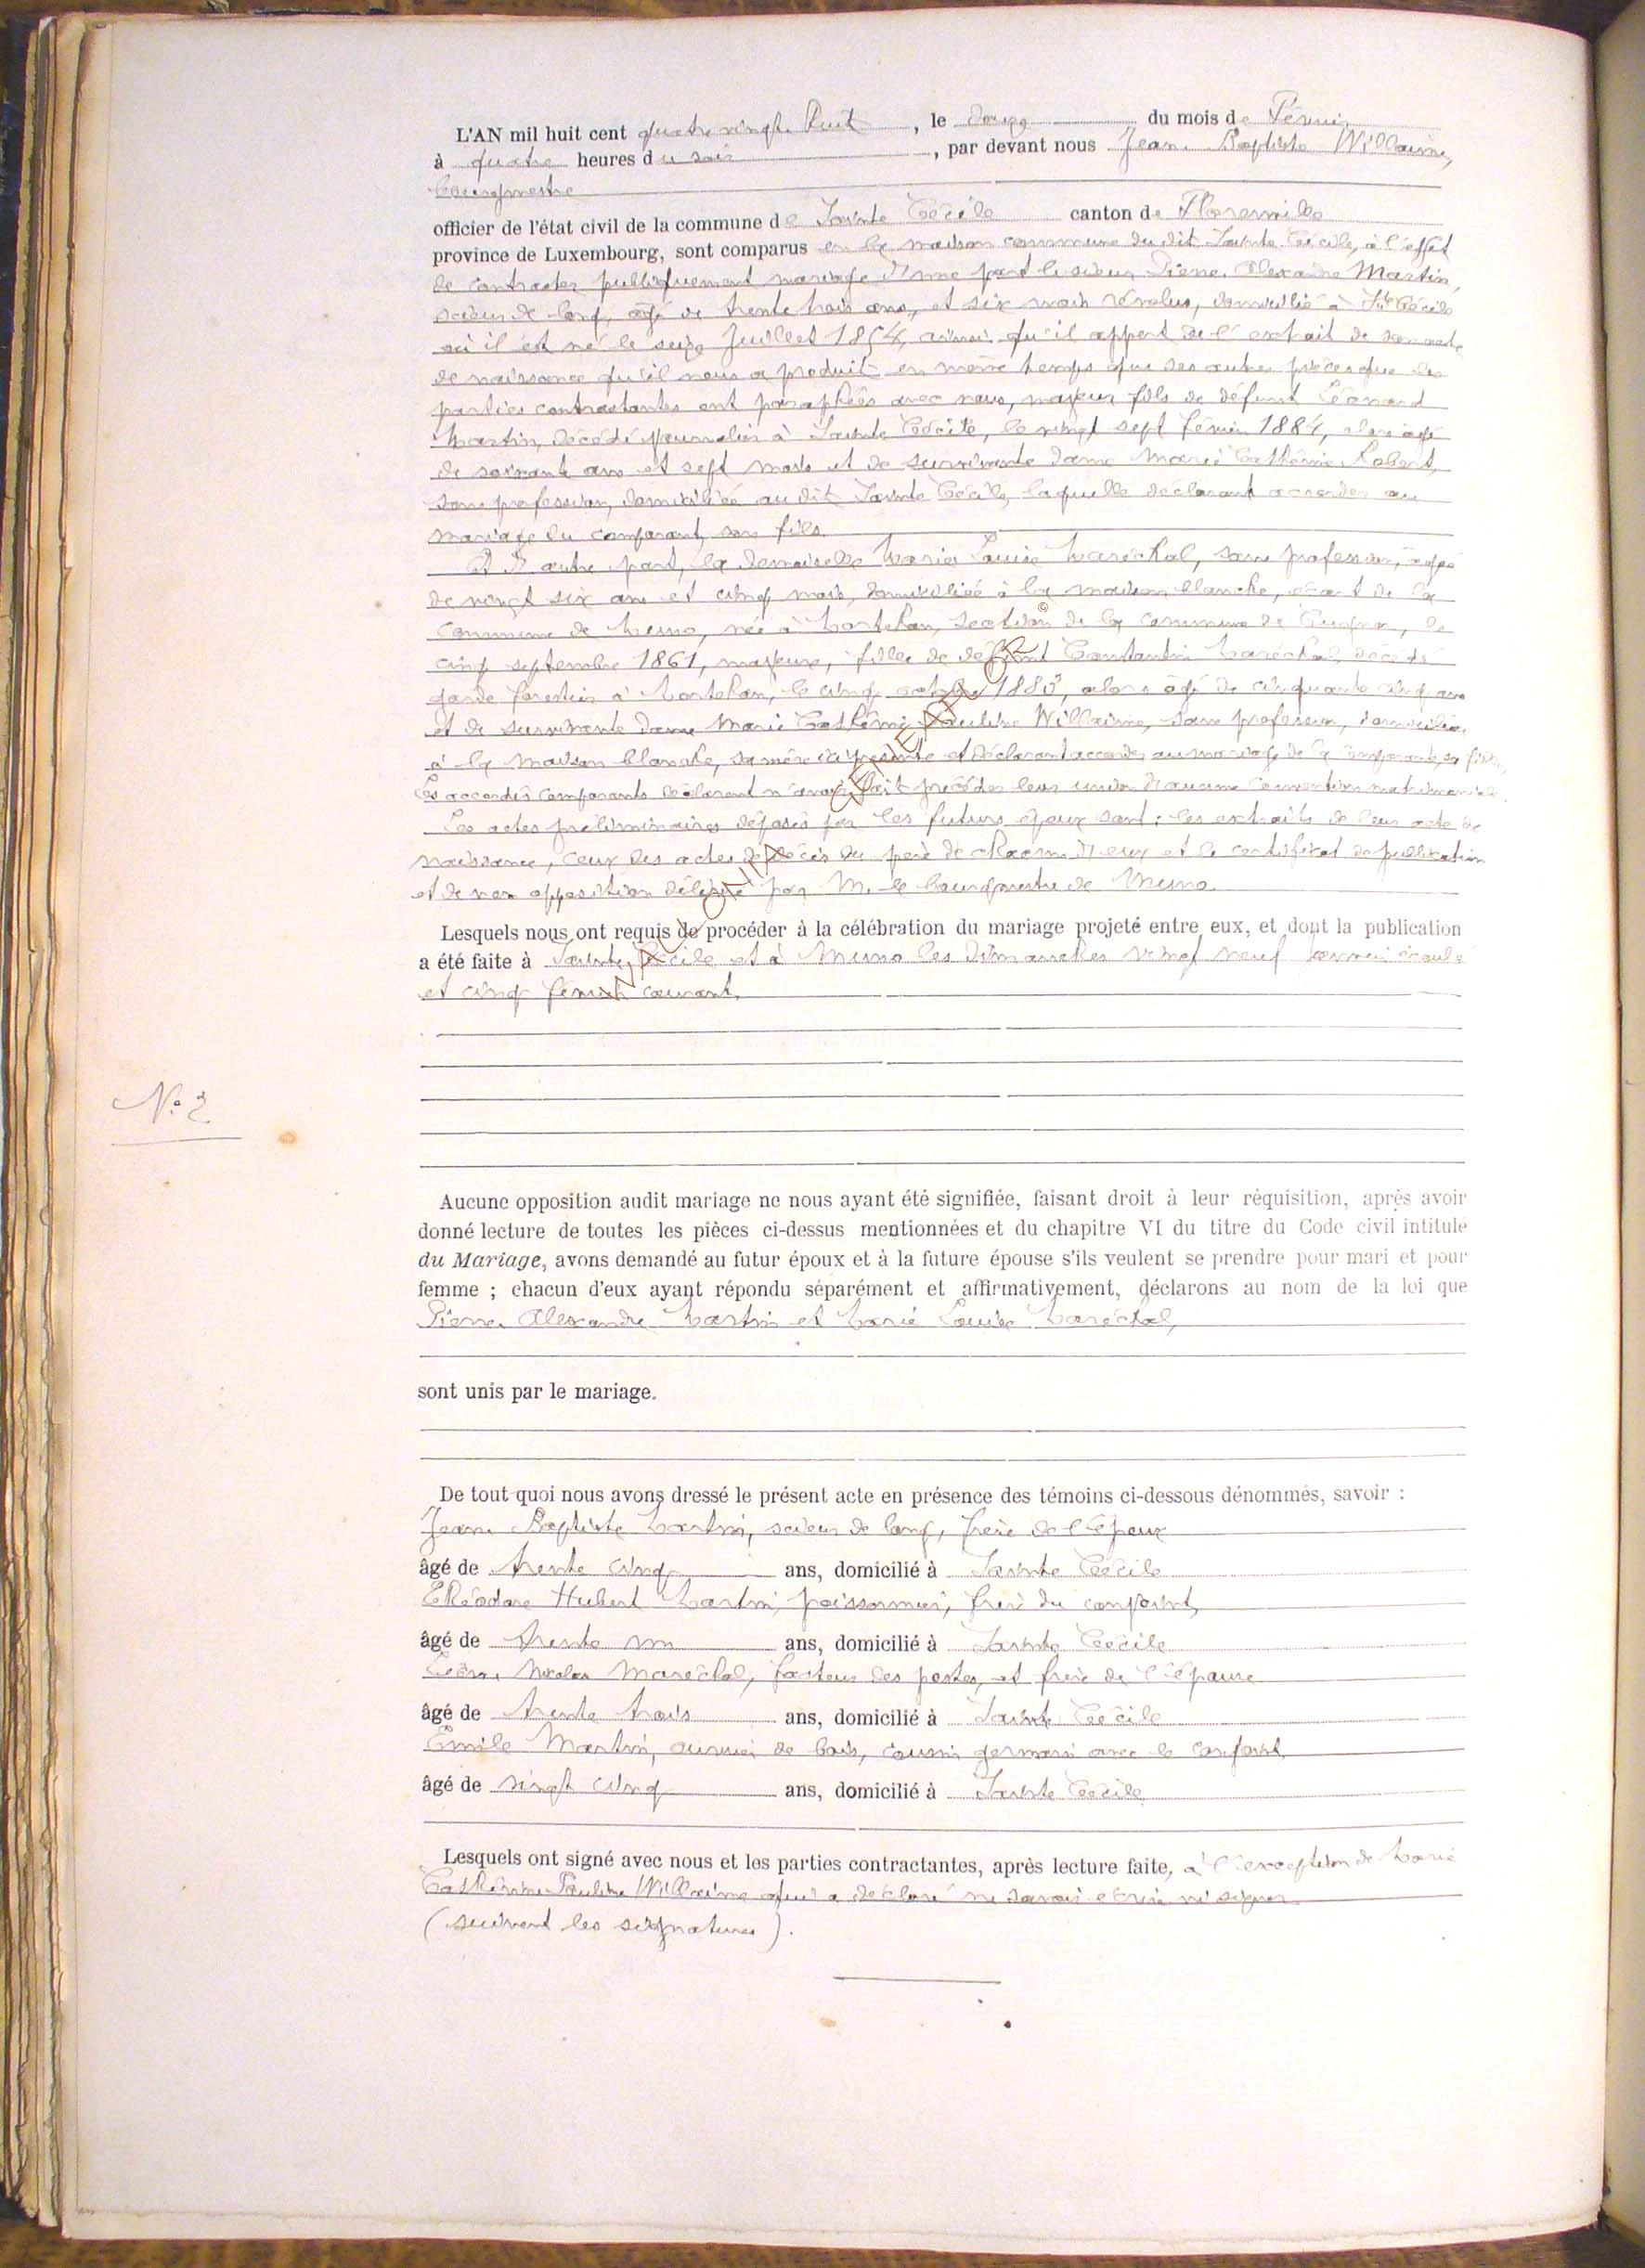 L'AN mil huit cent quatre vingt huit, le douze du mois de Février
à quatre heures du soir, par devant nous Jean Baptiste Willaime,
bourgmestre
officier de l'état civil de la commune de Sainte Cécile canton de Florenville
province de Luxembourg, sont comparus en la maison commune du dit Sainte Cécile, à l'effet
de contracter publiquement mariage d'une part le sieur Pierre Alexandre Martin,
scieur de long, âgé de trente trois ans, et six mois révolus, domicilié à Ste Cécile
où il est né le seize Juillet 1854, ainsi qu'il appert de l'extrait de son acte
de naissance qu'il nous a produit en même temps que ses autres pièces que les
parties contractantes ont paraphées avec nous, majeur, fils de défunt Léonard
Martin, décédé journalier à Sainte Cécile, le vingt sept février 1884, alors âgé
de soixante ans et sept mois et de survivante dame Marie Cathérine Robert,
sans profession, domiciliée au dit Sainte Cécile, laquelle déclarant accorder au
mariage du comparant, son fils.
Et d'autre part, la demoiselle Marie Louise Maréchal, sans profession, âgée
de vingt six ans et cinq mois, domiciliée à la maison blanche, écart de la
commune de Muno, née à Mortehan, section de la commune de Cugnon, le
cinq septembre 1861, majeure, fille de défunt Constantin Maréchal, décédé
garde forestier à Mortehan, le cinq octobre 1880, alors âgé de cinquante cinq ans
et de survivante dame Marie Cathérine Pauline Willaime, sans profession, domiciliée
à la maison blanche, sa mère ici présente et déclarant accorder au mariage de la comparante, sa fille.
Les accordés comparants déclarent n'avoir fait précéder leur union d'aucune convention matrimoniale.
Les actes préliminaires déposés par les futurs époux sont: les extraits de leur acte de
naissance, ceux des actes de décès du père de chacun d'eux et le certificat de publication
et de non opposition délivré par M. le bourgmestre de Muno.
Lesquels nous ont requis de procéder à la célébration du mariage projeté entre eux, et dont la publication
a été faite à Sainte Cécile et à Muno les dimanches vingt neuf janvier écoulé
et cinq février courant.
N° 2
Aucune opposition audit mariage ne nous ayant été signifiée, faisant droit à leur réquisition, après avoir
donné lecture de toutes les pièces ci-dessus mentionnées et du chapitre VI du titre du Code civil intitulé
du Mariage, avons demandé au futur époux et à la future épouse s'ils veulent se prendre pour mari et pour
femme ; chacun d'eux ayant répondu séparément et affirmativement, déclarons au nom de la loi que
Pierre Alexandre Martin et Marie Louise Maréchal,
sont unis par le mariage.
De tout quoi nous avons dressé le présent acte en présence des témoins ci-dessous dénommés, savoir :
Jean Baptiste Martin, scieur de long, frère de l'époux
âgé de trente cinq ans, domicilié à Sainte Cécile
Théodore Hubert Martin, poissonnier, frère du conjoint,
âgé de trente un ans, domicilié à Sainte Cécile
Nicolas Maréchal, facteur des postes, et frère de l'épouse
âgé de trente trois ans, domicilié à Sainte Cécile
Emile Martin, ouvrier de bois, cousin germain avec le conjoint
âgé de vingt cinq ans, domicilié à Sainte Cécile
Lesquels ont signé avec nous et les parties contractantes, après lecture faite, à l'exception de Marie
Cathérine Pauline Willaime qui a déclaré ne savoir écrire ni signer
(suivent les signatures).